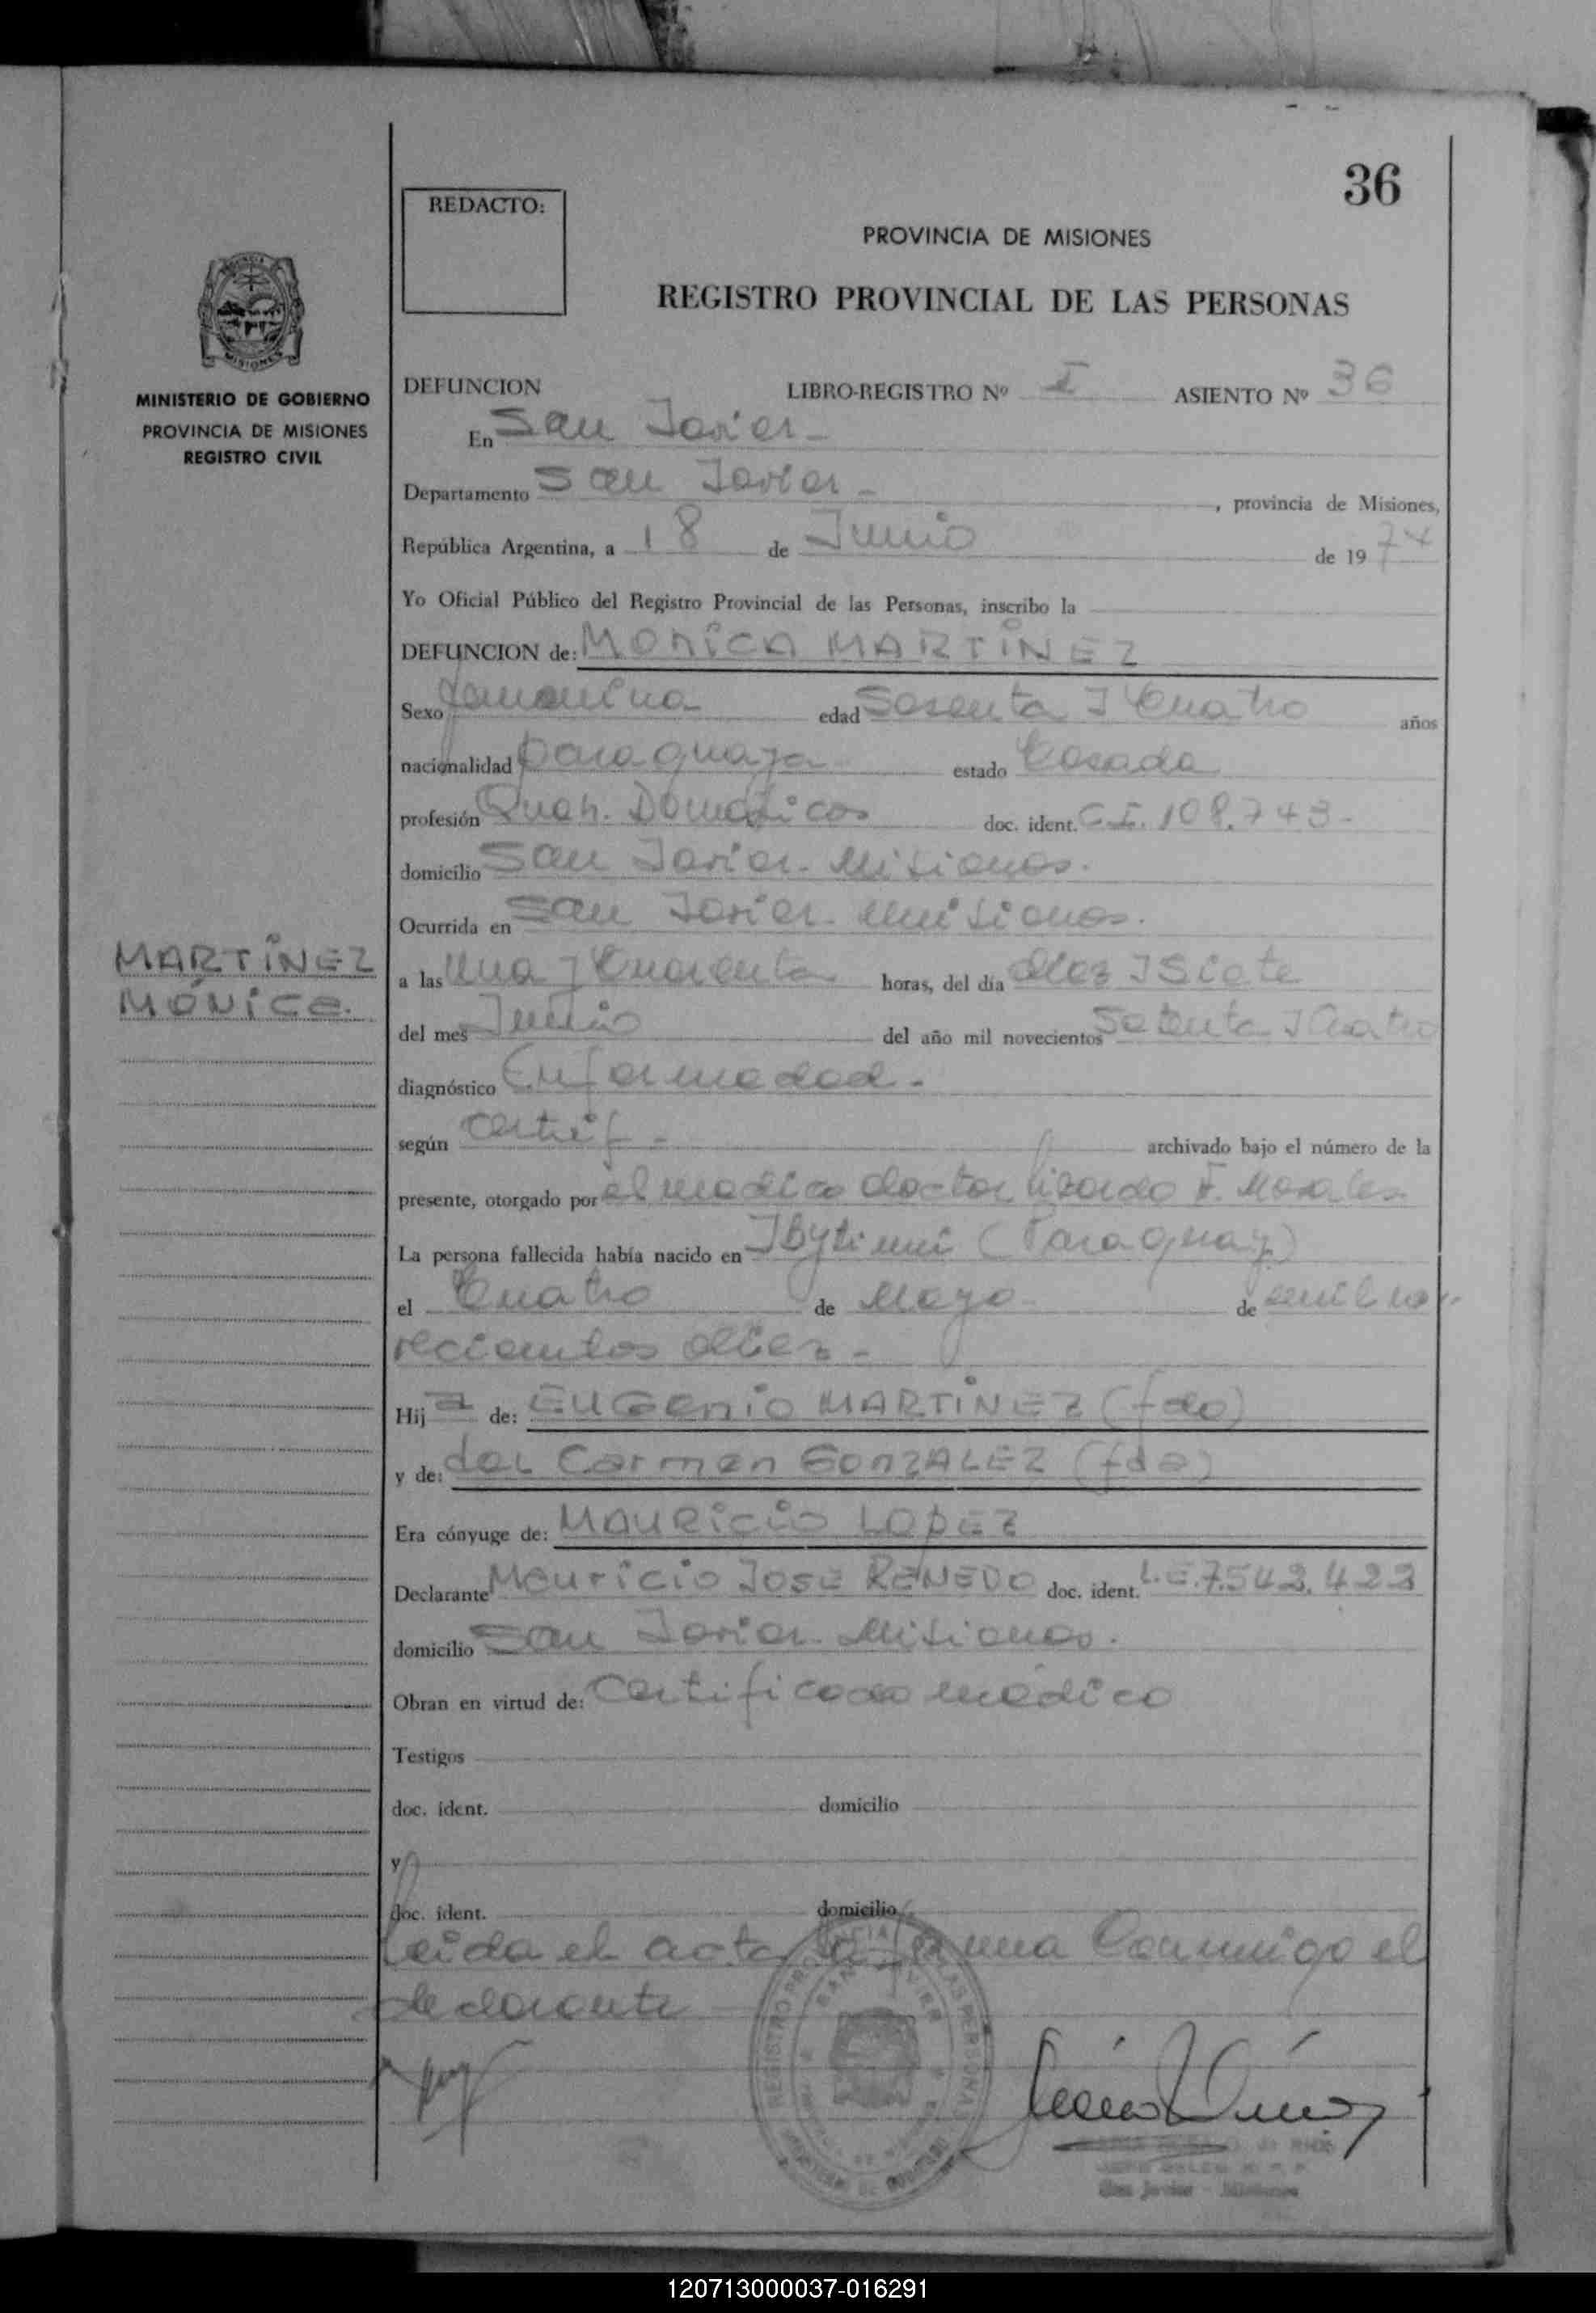 36
REDACTO:
PROVINCIA DE MISIONES
REGISTRO PROVINCIAL DE LAS PERSONAS
MINISTERIO DE GOBIERNO
PROVINCIA DE MISIONES
REGISTRO CIVIL
DEFUNCION LIBRO-REGISTRO Nº I ASIENTO Nº 36
En San Javier-
Departamento San Javier- , provincia de Misiones,
República Argentina, a 18 de Junio de 1974
Yo Oficial Público del Registro Provincial de las Personas, inscribo la
DEFUNCION de: MONICA MARTINEZ
Sexo femenina edad Sesenta y Cuatro años
nacionalidad paraguaya estado Casada
profesión Queh. Domésticos doc. ident. C.I. 108.743-
domicilio San Javier- Misiones.
Ocurrida en San Javier- Misiones.
MARTINEZ
MÓNICA.
a las Una y Cuarenta horas, del día diez y Siete
del mes Junio del año mil novecientos Setenta y Cuatro
diagnóstico Enfermedad-
según Certif- archivado bajo el número de la
presente, otorgado por el medico doctor Lizardo F. Morales
La persona fallecida había nacido en Ybytimi (Paraguay)
el Cuatro de Mayo de mil no-
vecientos diez-
Hija de: EUGENIO MARTINEZ (fdo)
y de: del Carmen GONZALEZ (fda)
Era cónyuge de: MAURICIO LOPEZ
Declarante Mauricio JOSE RENEDO doc. ident. L.E. 7.543.423
domicilio San Javier- Misiones.
Obran en virtud de: Certificado médico
Testigos
doc. ident. domicilio
y
doc. ident. domicilio
Leida el acta la firma Conmigo el
declarante
San Javier - Misiones
120713000037-016291